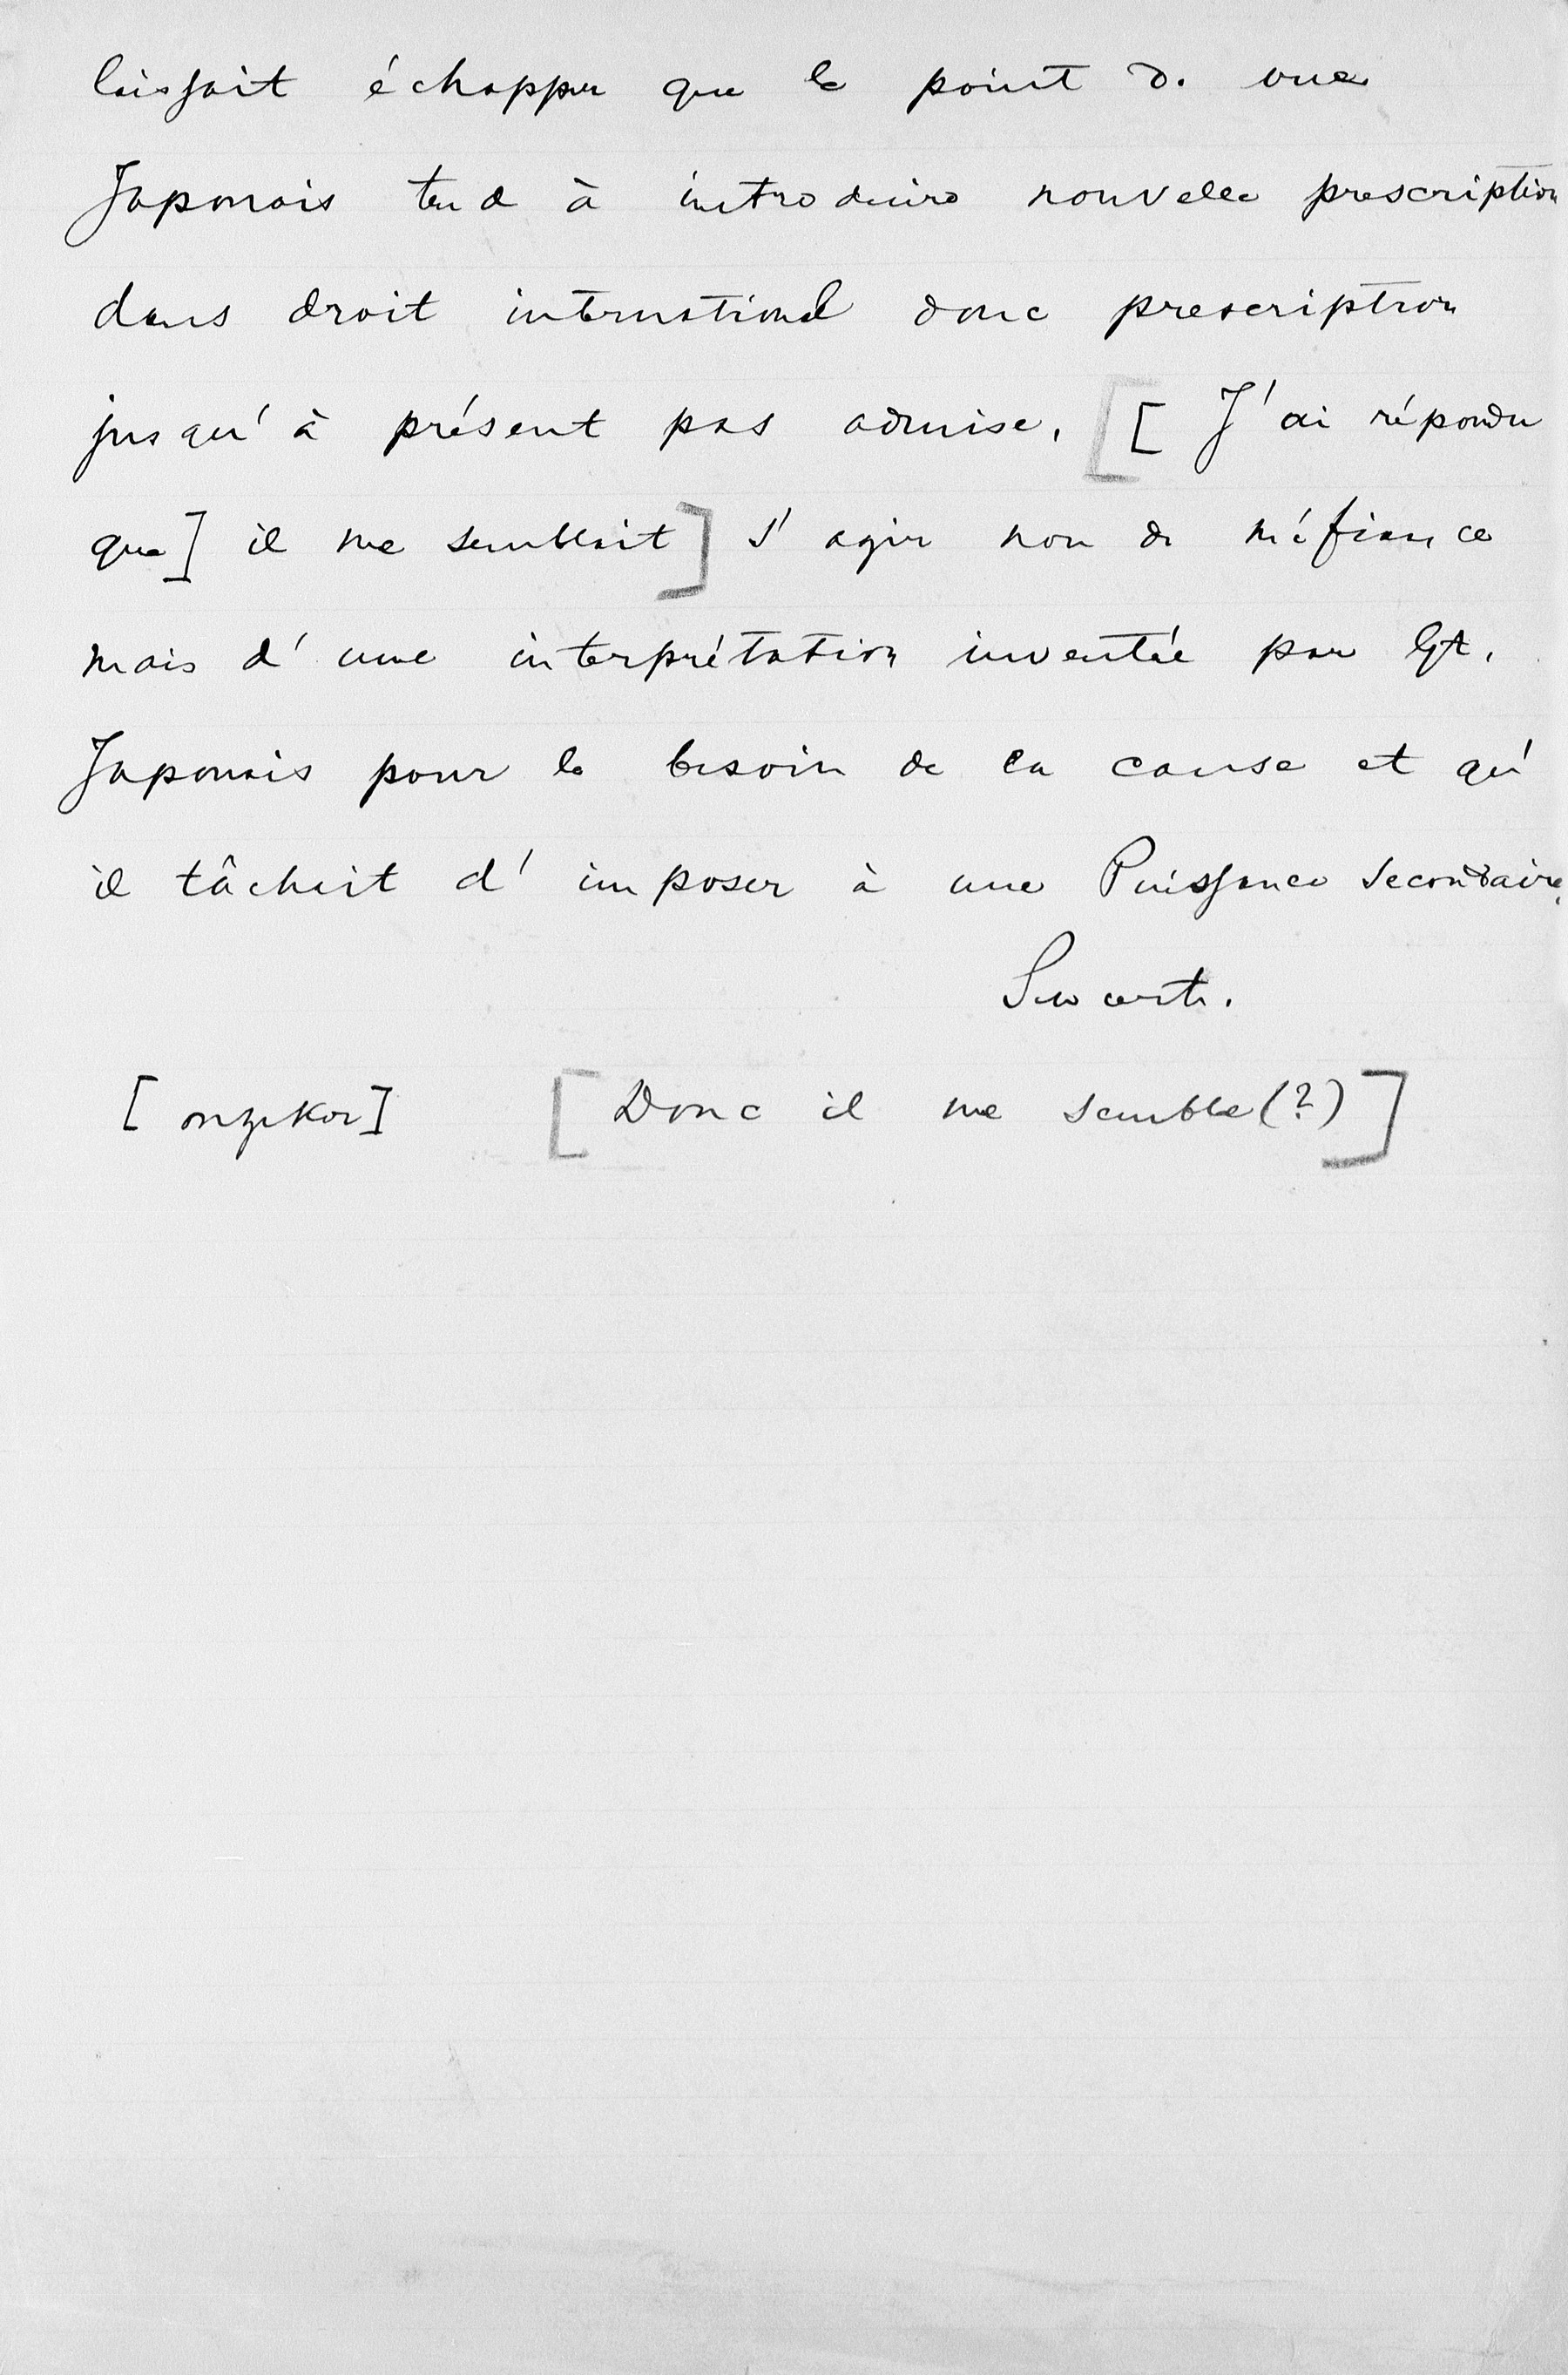 laissait échapper que le point d. vue
Japonais tend à introduire nouvelle prescription
dans droit international donc prescription
jusqu'à présent pas admise. [ [ J'ai répondu
que] il me semblait] s'agir non de méfiance
mais d'une interprétation inventée par Gt.
Japonais pour le besoin de la cause et qu'
il tâchait d'imposer à une Puissance secondaire.
Swart.
[onzeker] [Donc il me semble(?)]